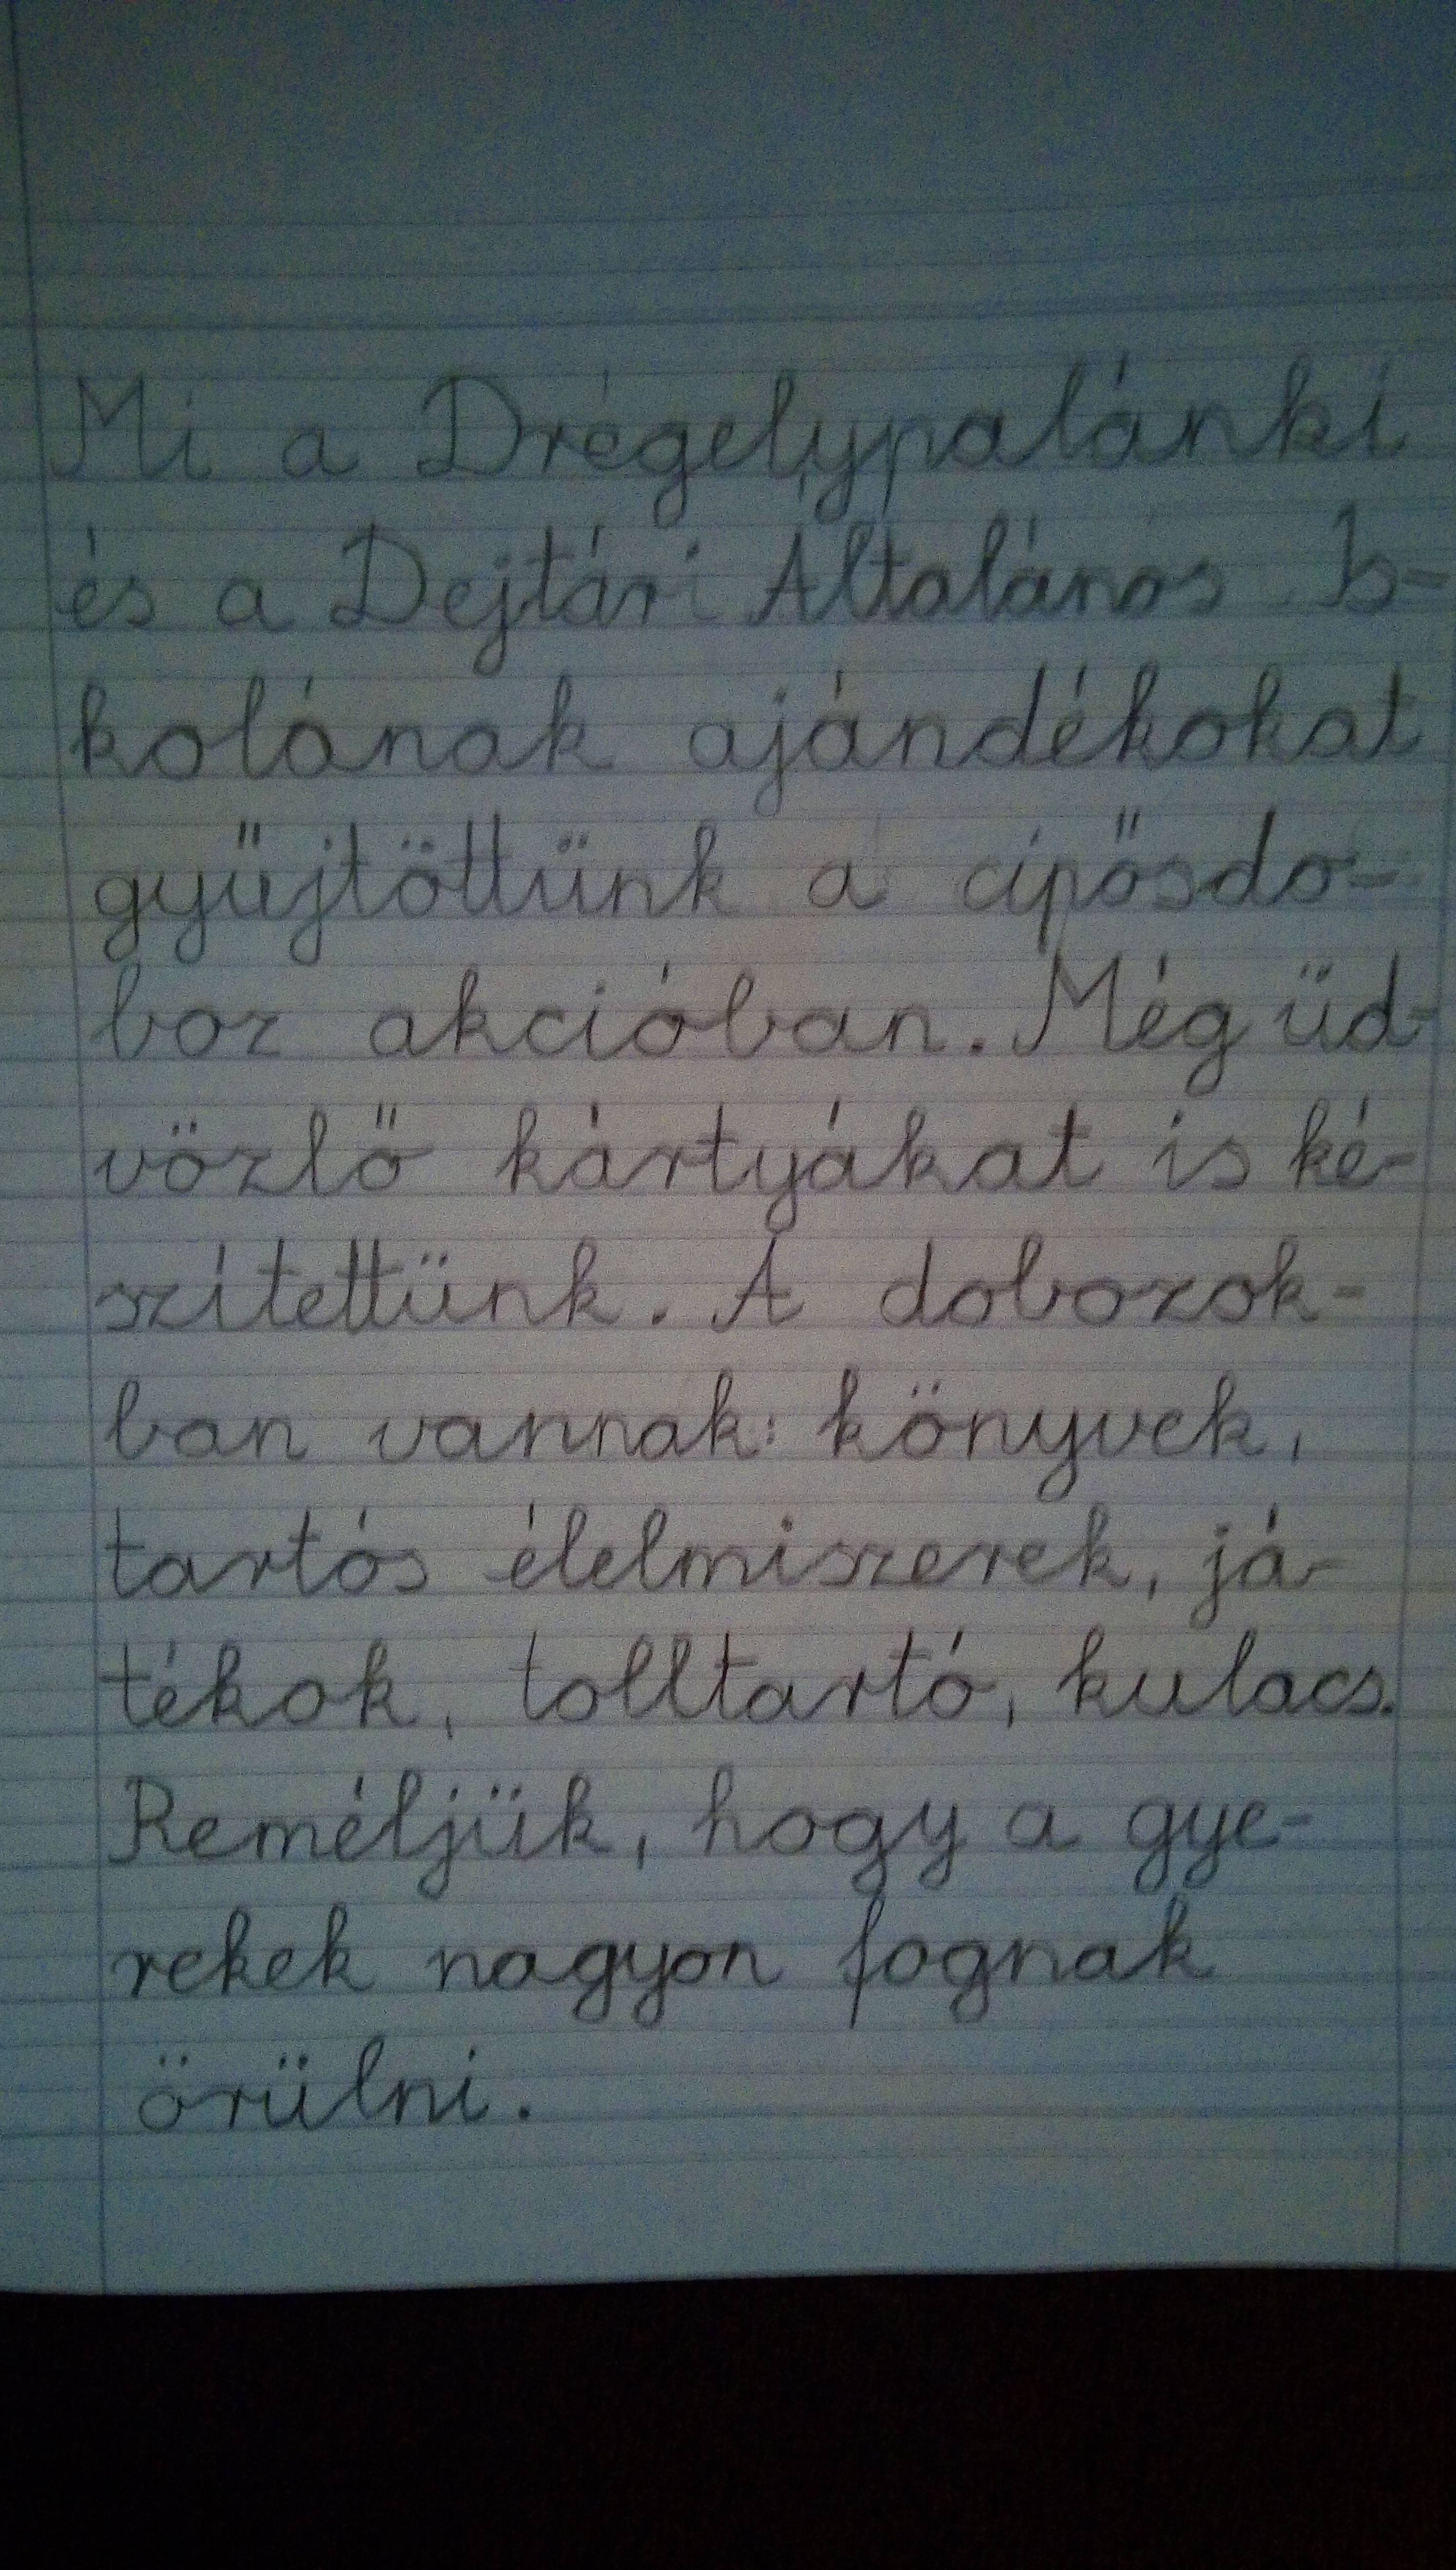 Mi a Drégelypalánki
és a Dejtári Általános Is-
kolának ajándékokat
gyűjtöttünk a cipősdo-
boz akcióban. Még üd-
vözlő kártyákat is ké-
szítettünk. A dobozok-
ban vannak: könyvek,
tartós élelmiszerek, já-
tékok, tolltartó, kulacs.
Reméljük, hogy a gye-
rekek nagyon fognak
örülni.